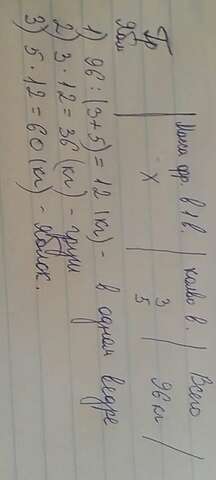 Масса фр. в 1 в. | колво в. | Всего
Гр 3
Ябл х 5 96 кг
1) 96 : (3+5) = 12 (кг) - в одном ведре
2) 3 · 12 = 36 (кг) - груш
3) 5 · 12 = 60 (кг) - яблок.